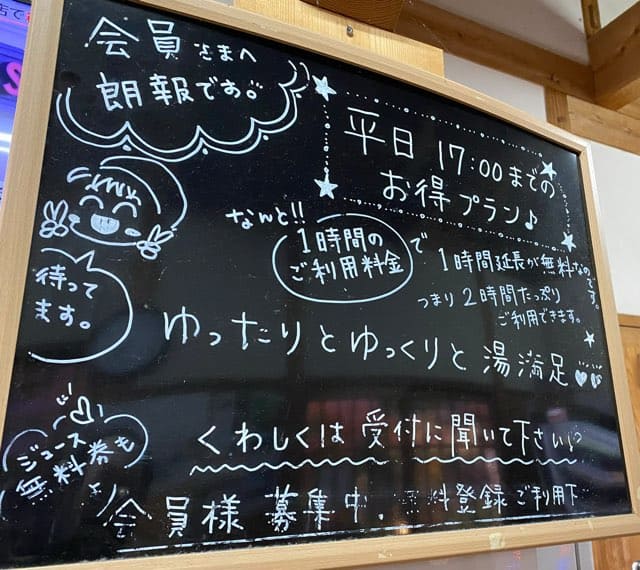 会員さまへ
朗報です。
平日 17:00までの
お得プラン♪
なんと!!
1時間の
ご利用料金
で
1時間延長が無料なのです。
つまり2時間たっぷり
ご利用できます。
待ってます。
ゆったりとゆっくりと 湯満足
ジュース
無料券も
くわしくは受付に聞いて下さい♡
会員様 募集中. 料登録ご利用下